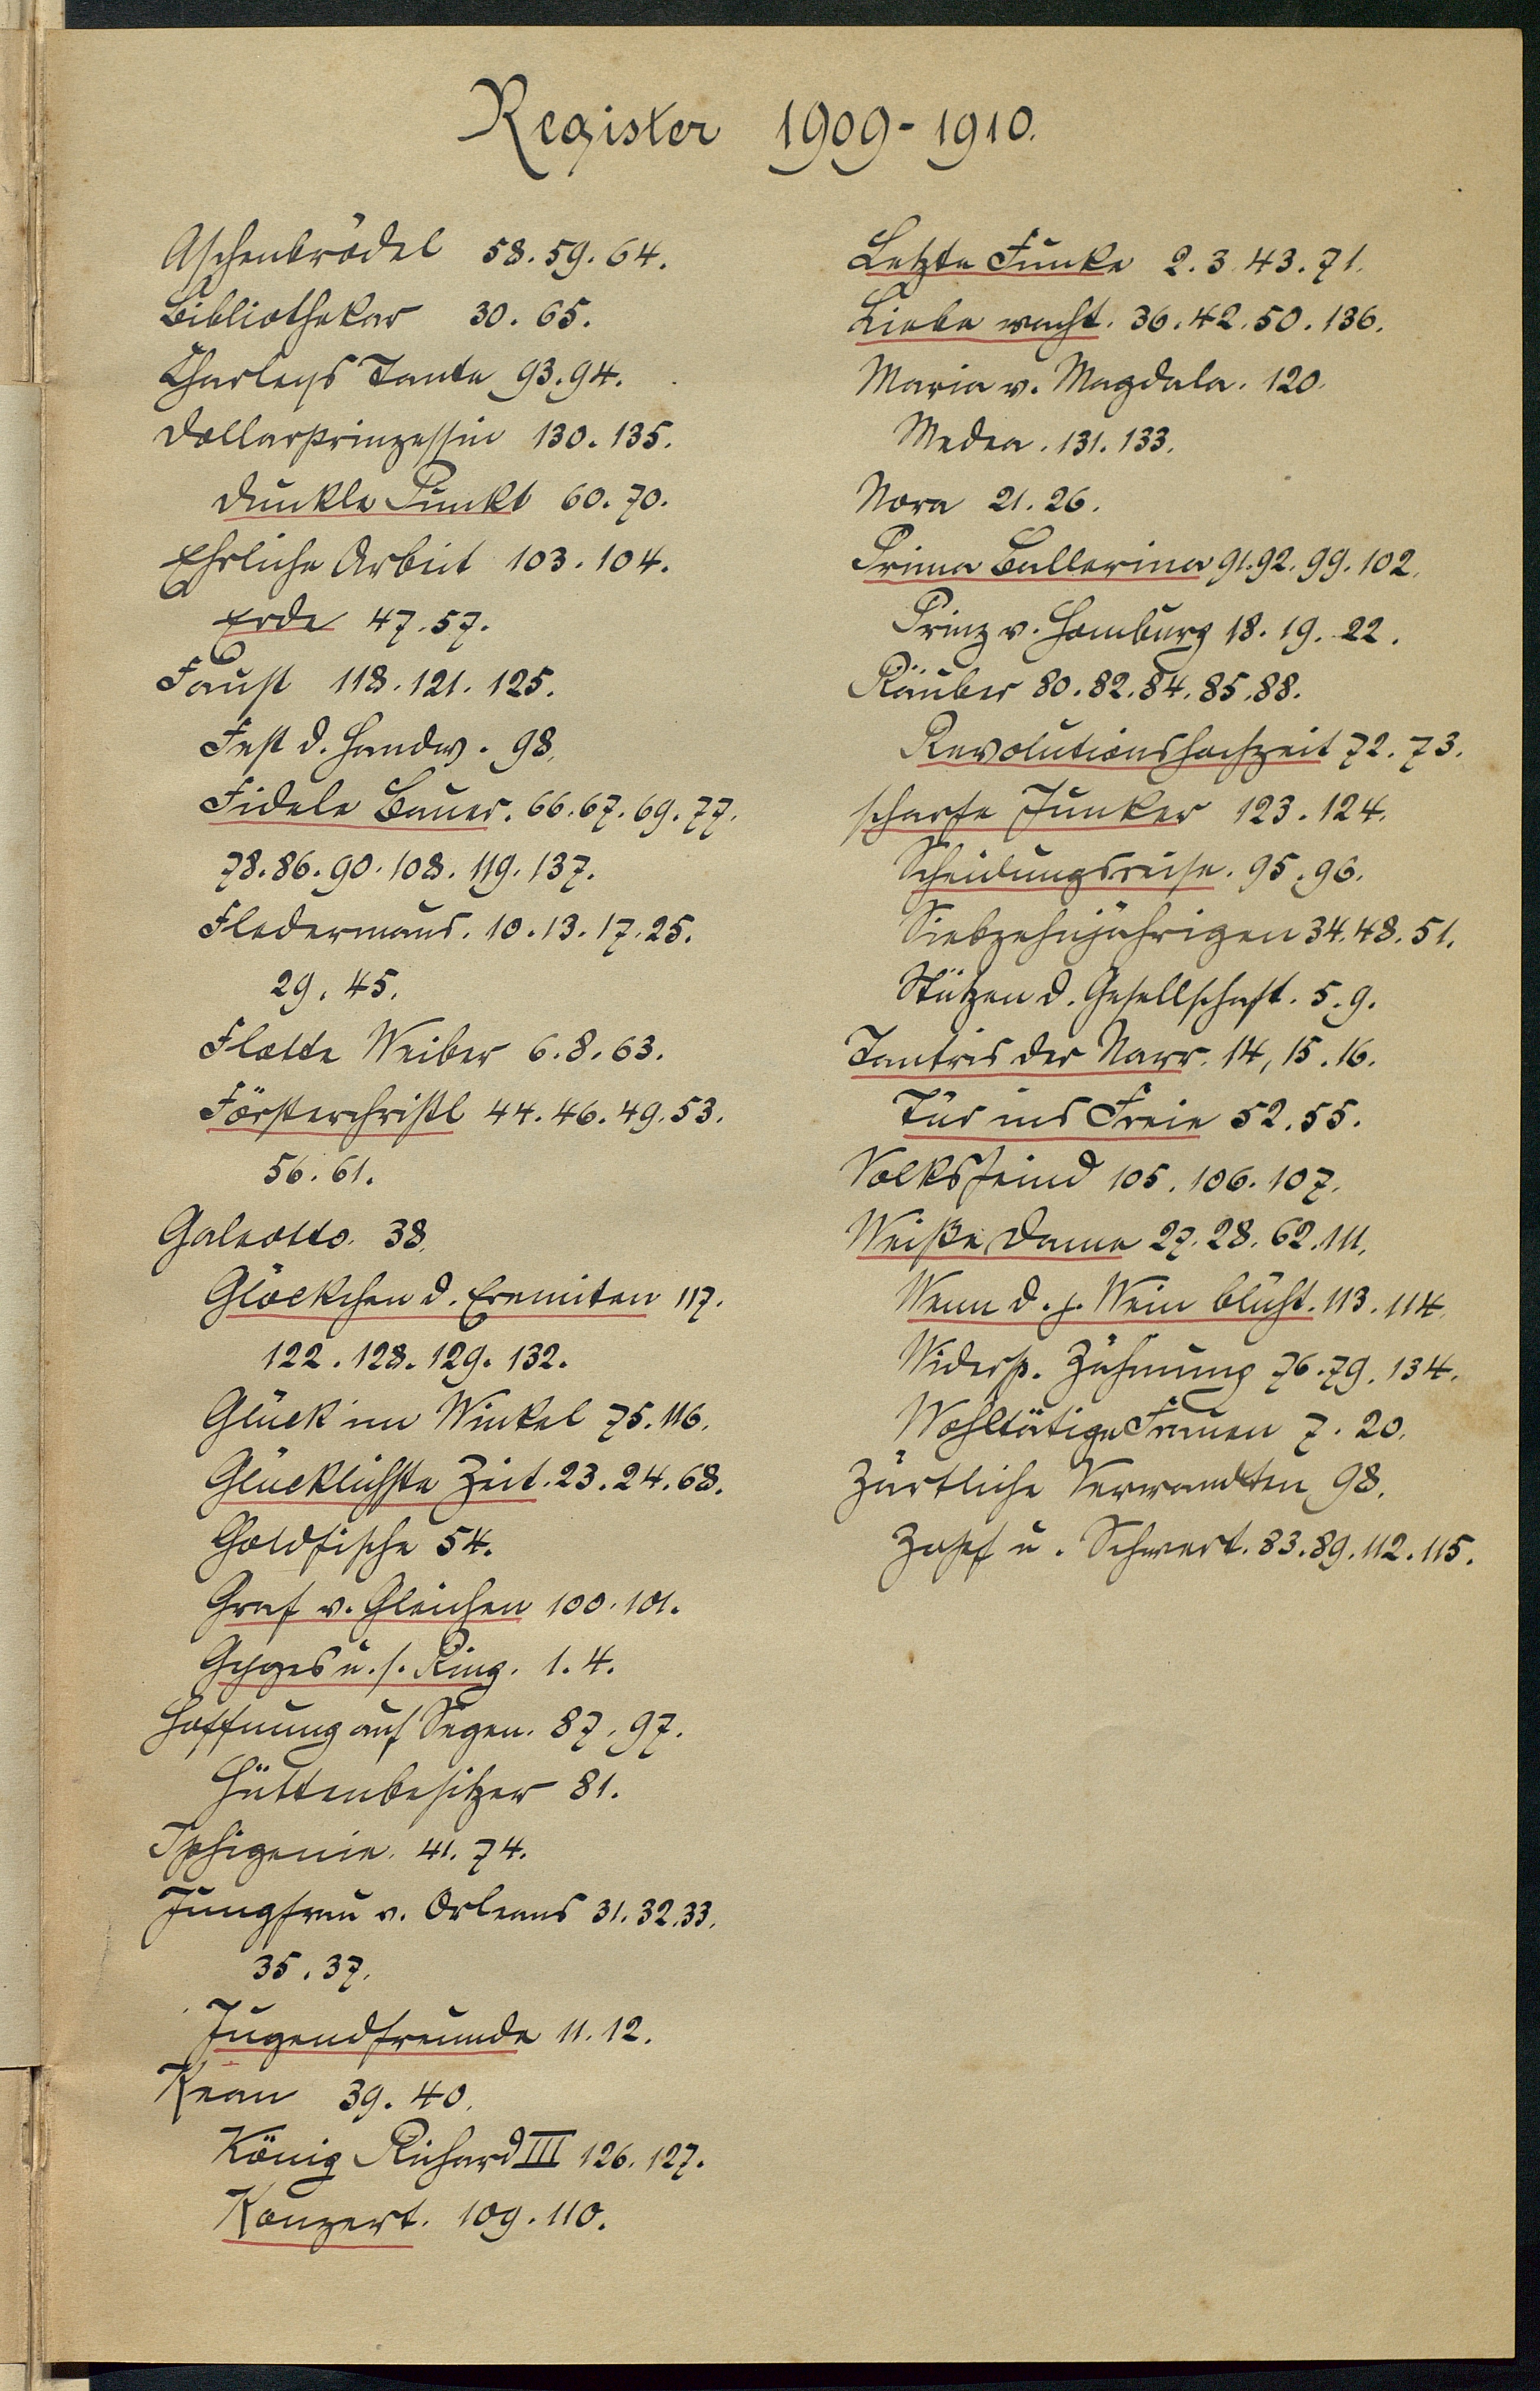 Register 1909-1910.
Aschenbrödel 58. 59. 64.
Bibliothekar 30. 65.
Charleys Tante 93. 94.
Dollarprinzessin 130. 135.
Dunkle Punkt 60. 70.
Ehrliche Arbeit 103. 104.
Erde 47. 57.
Faust 118. 121. 125.
Fest d. Handw. 98.
Fidele Bauer. 66. 67. 69. 77.
78. 86. 90. 108. 119. 137.
Fledermaus. 10. 13. 17. 25.
29. 45.
Flotte Weiber 6. 8. 63.
Försterchristl 44. 46. 49. 53.
56. 61.
Galeotto. 38.
Glöckchen d. Eremiten 117.
122. 128. 129. 132.
Glück im Winkel 75. 116.
Glücklichste Zeit. 23. 24. 68.
Goldfische 54.
Graf v. Gleichen 100. 101.
Gyges u. s. Ring. 1. 4.
Hoffnung auf Segen. 87. 97.
Hüttenbesitzer 81.
Iphigenie. 41. 74.
Jungfrau v. Orleans 31. 32. 33.
35. 37.
Jugendfreunde 11. 12.
Kean 39. 40.
König Richard III 126. 127.
Konzert. 109. 110.
Letzte Funke 2. 3. 43. 71.
Liebe wacht. 36. 42. 50. 136.
Maria v. Magdala. 120.
Medea. 131. 133.
Nora 21. 26.
Prima Ballerina 91. 92. 99. 102.
Prinz v. Homburg 18. 19. 22.
Räuber 80. 82. 84. 85. 88.
Revolutionshochzeit 72. 73.
scharfe Junker 123. 124.
Scheidungsreise. 95. 96.
Siebzehnjährigen 34. 48. 51.
Stützen d. Gesellschaft. 5. 9.
Tantris der Narr. 14, 15. 16.
Tür ins Freie 52. 55.
Volksfeind 105. 106. 107.
Weiße Dame 27. 28. 62. 111.
Wenn d. j. Wein blüht. 113. 114.
Widersp. Zähmung 76. 79. 134.
Wohltätige Frauen 7. 20.
Zärtliche Verwandten 98.
Zopf u. Schwert. 83. 89. 112. 115.